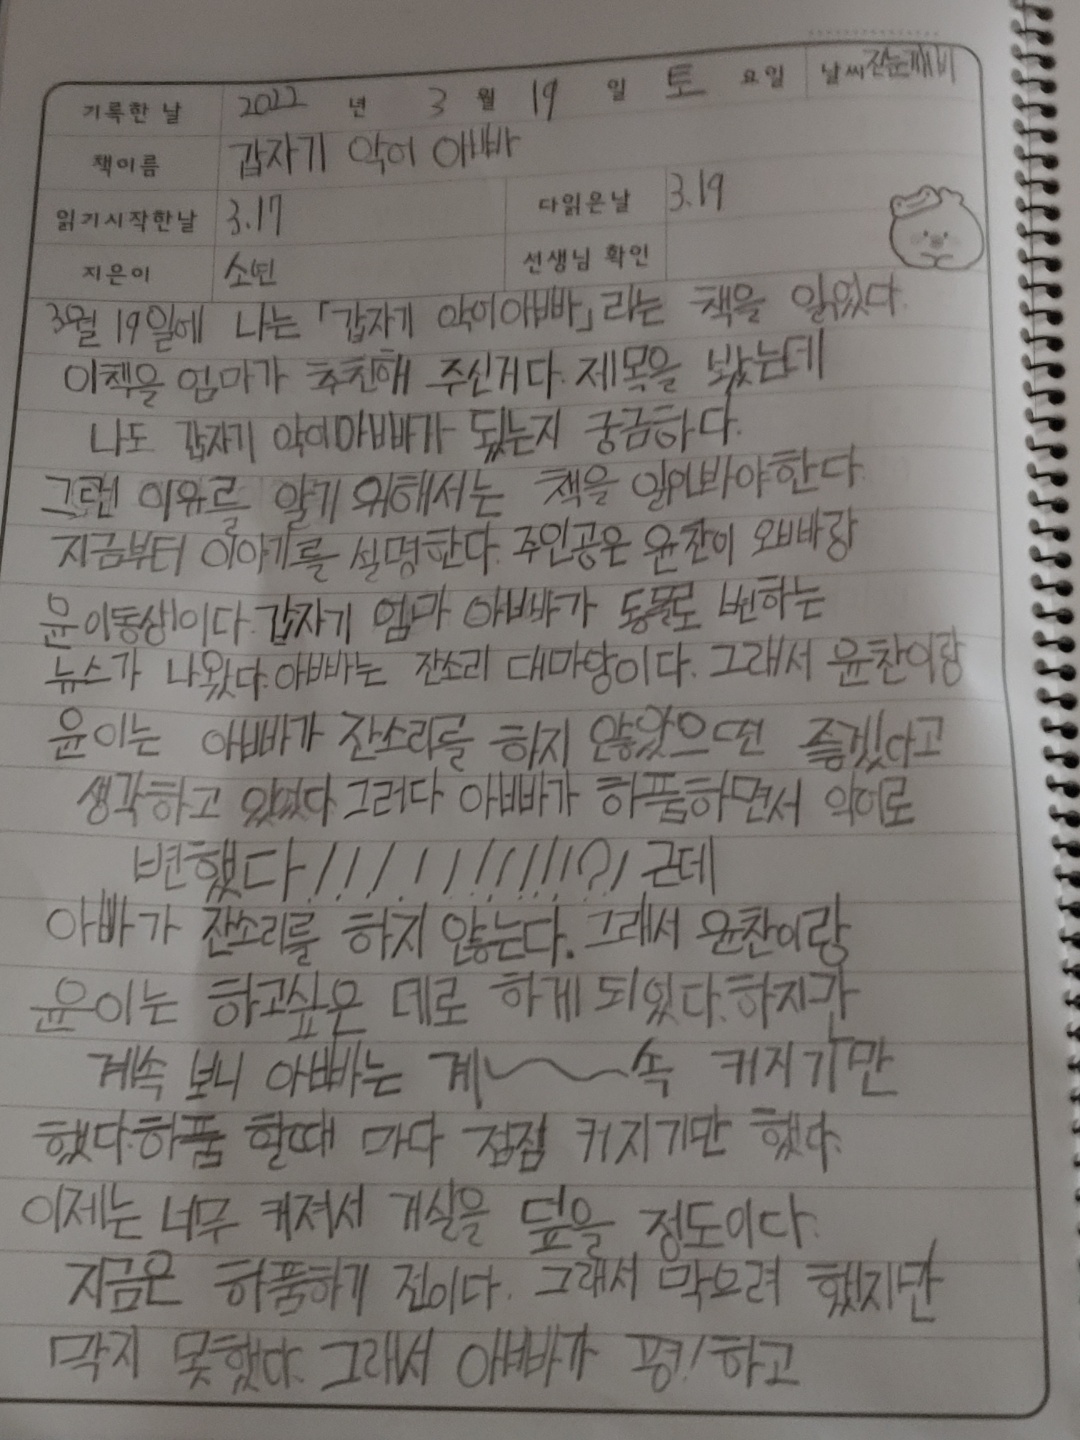 기록한 날 2022 년 3 월 19 일 토 요일 날씨 진눈깨비
책이름 갑자기 악어 아빠
읽기시작한날 3.17 다읽은날 3.19
지은이 소년 선생님 확인
3월 19일에 나는 「갑자기 악어아빠」라는 책을 읽었다.
이책을 엄마가 추천해 주신거다. 제목을 봤는데
나도 갑자기 악어아빠가 됬는지 궁금하다.
그런 이유를 알기 위해서는 책을 읽어바야한다.
지금부터 이야기를 설명한다. 주인공은 윤찬이 오빠랑
윤이동생이다. 갑자기 엄마 아빠가 동물로 변하는
뉴스가 나왔다. 아빠는 잔소리 대마왕이다. 그래서 윤찬이랑
윤이는 아빠가 잔소리를 하지 않았으면 좋겠다고
생각하고 있었다. 그러다 아빠가 하품하면서 악어로
변했다!!!!!!!!!!!?! 근데
아빠가 잔소리를 하지 않는다. 그래서 윤찬이랑
윤이는 하고싶은 데로 하게 되있다. 하지만
계속 보니 아빠는 계~~속 커지기만
했다. 하품 할때 마다 점점 커지기만 했다.
이제는 너무 커져서 거실을 덮을 정도이다.
지금은 하품하기 전이다. 그래서 막으려 했지만
막지 못했다. 그래서 아빠가 펑! 하고